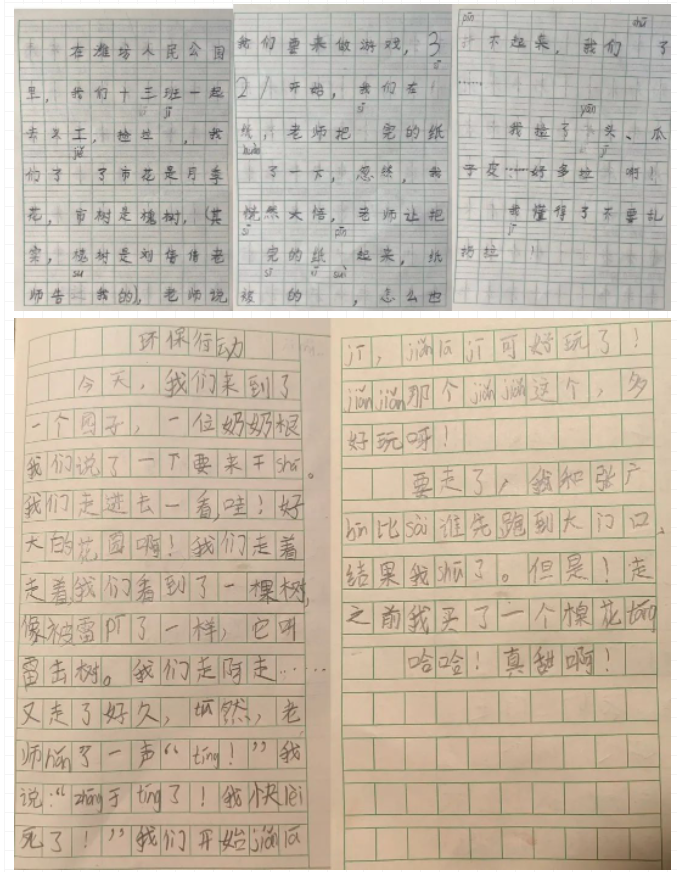 在潍坊人民公园
里，我们十三班一起
去来工，捡垃　，我
jiě
们了　了市花是月季
花，市树是槐树，（其
实，槐树是刘倩倩老
sù
师告　我的），老师说
我们要来做游戏，3
sī
21开始，我们在
sī
纸，老师把　完的纸
huàn
了一下，忽然，我
恍然大悟，老师让把
sī pīn
完的纸　起来，纸
sī suì
被　的　，怎么也
pīn
拼不起来，我们 了
shū
……
yān
我捡了　头、瓜
jī
子皮……好多垃　啊！
我懂得了不要乱
jī
扔垃　！
环保行动
今天，我们来到了
一个园子，一位奶奶根
我们说了一下要来干shá。
我们走进去一看，哇！好
大的花园啊！我们走着
走着我们看到了一棵树，
像被雷pī了一样，它叫
雷击树。我们走阿走……
又走了好久，　然，老
师hǎn了一声“tíng！”我
说：“zhōng于tíng了！我快lèi
死了！”我们开始jiǎn lā
jī，jiǎn lā jī可好玩了！
jiǎn jiǎn那个jiǎn jiǎn这个，多
好玩呀！
要走了，我和张广
bīn比sài谁先跑到大门口，
结果我shū了。但是！走
之前我买了一个棉花táng，
哈哈！真甜啊！